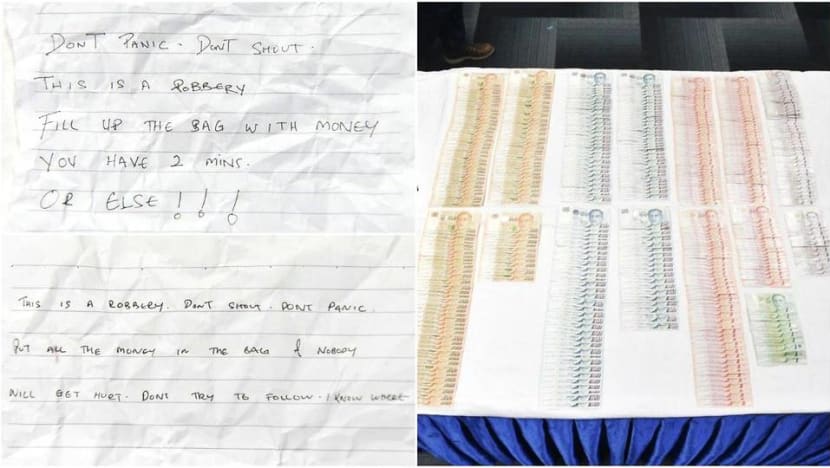 DONT PANIC. DONT SHOUT.
THIS IS A ROBBERY
FILL UP THE BAG WITH MONEY
YOU HAVE 2 MINS.
OR ELSE !!!
THIS IS A ROBBERY. DONT SHOUT. DONT PANIC.
PUT ALL THE MONEY IN THE BAG & NOBODY
WILL GET HURT. DONT TRY TO FOLLOW. I KNOW WHERE